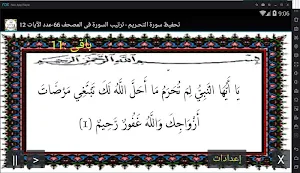 9:06
تحفيظ سورة التحريم - ترتيب السورة في المصحف 66-عدد الآيات 12
باقي 11
بسم الله الرحمن الرحيم
يَا أَيُّهَا النَّبِيُّ لِمَ تُحَرِّمُ مَا أَحَلَّ اللَّهُ لَكَ تَبْتَغِي مَرْضَاتَ
أَزْوَاجِكَ وَاللَّهُ غَفُورٌ رَّحِيمٌ (1)
|| > إعدادات X